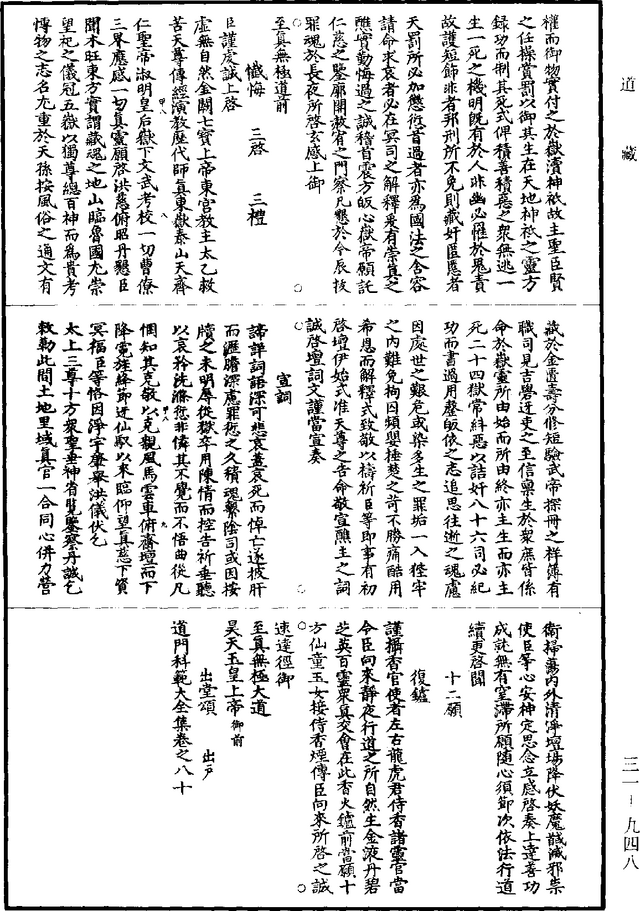 道藏
權而御物實付之於嶽瀆神祇故主聖臣賢
之任操賞罰以御其生在天地神祇之靈方
録功而制其死式俾積善積惡之衆無逃一
生一死之機明既有於人非幽必罹於鬼責
故護短飾非者邦刑所不免則藏奸匿慝者
天罰所必加愆從首過者亦爲國法之舍容
請命求哀者必在冥司之解釋爰有崇真之
醮實勤悔過之誠稽首震方皈心嶽帝願託
仁慈之鑒廓開赦宥之門察凡懇於今辰拔
罪魂於長夜所啓玄感上御
至真無極道前
懺悔 三啓 三禮
臣謹虔誠上啓
虛無自然金闕七寶上帝東宮教主太乙救
苦天尊傳經演教歷代師真東嶽泰山天齊
仁聖帝淑明皇后嶽下文武考校一切曹僚
三界應感一切真靈願啓洪慈俯昭丹懇臣
聞木旺東方實謂藏魂之地山臨魯國尤崇
望祀之儀冠五嶽以獨尊總百神而爲貴考
博物之志名尤重於天孫按風俗之通文有
藏於金匱壽分修短驗武帝探冊之祥簿有
職司見吉嚳迓吏之至信稟生於衆庶皆係
命於嶽靈所由始而所由終亦主生而亦主
死二十四獄常糾惡以詰奸八十六司必紀
功而書過用罄皈依之志追思往逝之魂處
因處世之艱危或染多生之罪垢一入狴牢
之內難免拘囚頻嬰捶楚之苛不勝痛酷用
希恩而解釋式致敬以禱祈臣等即事有初
啓壇伊始式准天尊之告命敬宣醮主之詞
誠啓壇詞文謹當宣奏
宣詞
諦詳詞語深可悲哀蓋哀死而悼亡遂披肝
而瀝膽深慮罪愆之久積魂繫陰司或因按
牘之未明辱從獄卒用陳情而控告祈垂聽
以哀矜洗滌愆非憐其不覺而不悟曲從凡
悃知其克敬以克親風馬雲車俯齋壇而下
降霓旌絳節迓仙馭以來臨仰望真慈下資
冥福臣等恪因淨宇庸舉洪儀伏乞
太上三尊十方衆聖垂神省覽鑒察丹誠乞
敕勒此間土地里域真官一合同心併力營
衛掃蕩內外清淨壇場降伏妖魔馘滅邪祟
使臣等心安神定思念立感啓奏上達善功
成就無有窒滯所願隨心須節次依法行道
續更啓聞
十二願
復鑪
謹攝香官使者左右龍虎君侍香諸靈官當
令臣向來靜夜行道之所自然生金液丹碧
芝英百靈衆真交會在此香火鑪前當願十
方仙童玉女接侍香煙傳臣向來所啓之誠
速達徑御
至真無極大道
昊天玉皇上帝御前
出堂頌 出戶
道門科範大全集卷之八十
三一–九四八